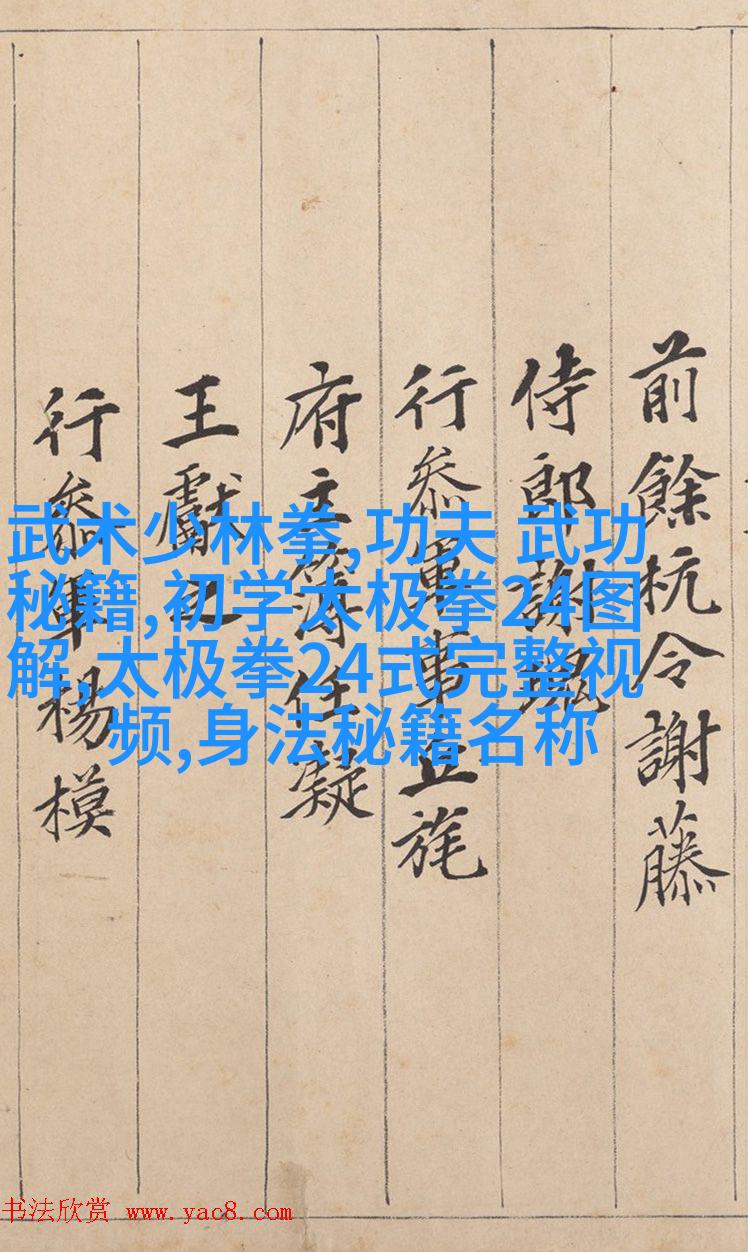 前餘杭令謝藤
侍郎謝瑰
行叅軍事丘旄
府主簿任凝
王獻之
行叅軍楊模
武术少林拳,功夫 武功
秘籍,初学太极拳24图
解,太极拳24式完整视
频,身法秘籍名称
书法欣赏 www.yac8.com